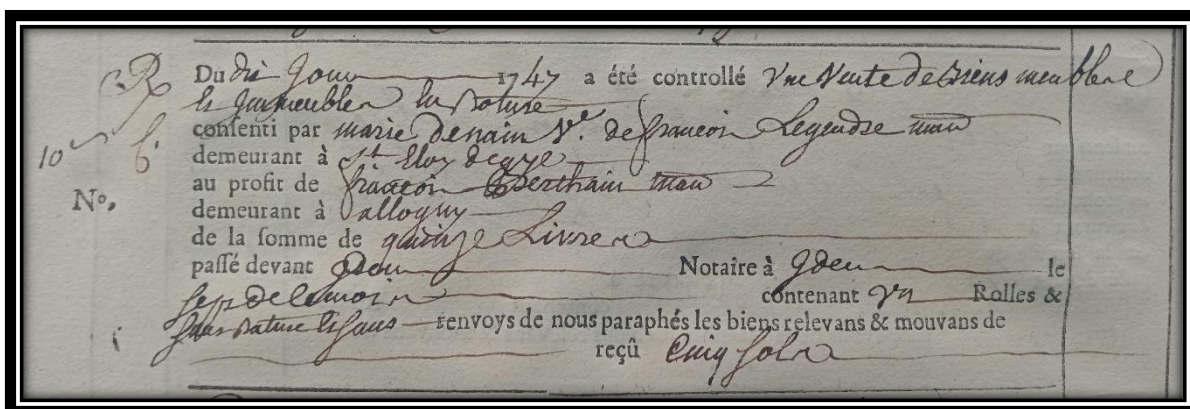 Du dit Jour 1747 a été controllé Vne Vente de Biens meubles
et Jmmeubles En Roture
consenti par marie Denain Ve. de francois Legendre man
demeurant à St Eloy degye
au profit de francois Berthain man
demeurant à allogny
de la somme de quinze Livres
passé devant Jdem Notaire à Jdem le
sept de ce mois contenant Vn Rolles &
renvoys de nous paraphés les biens relevans & mouvans de
reçû Cinq Sols
10s
6.
No.